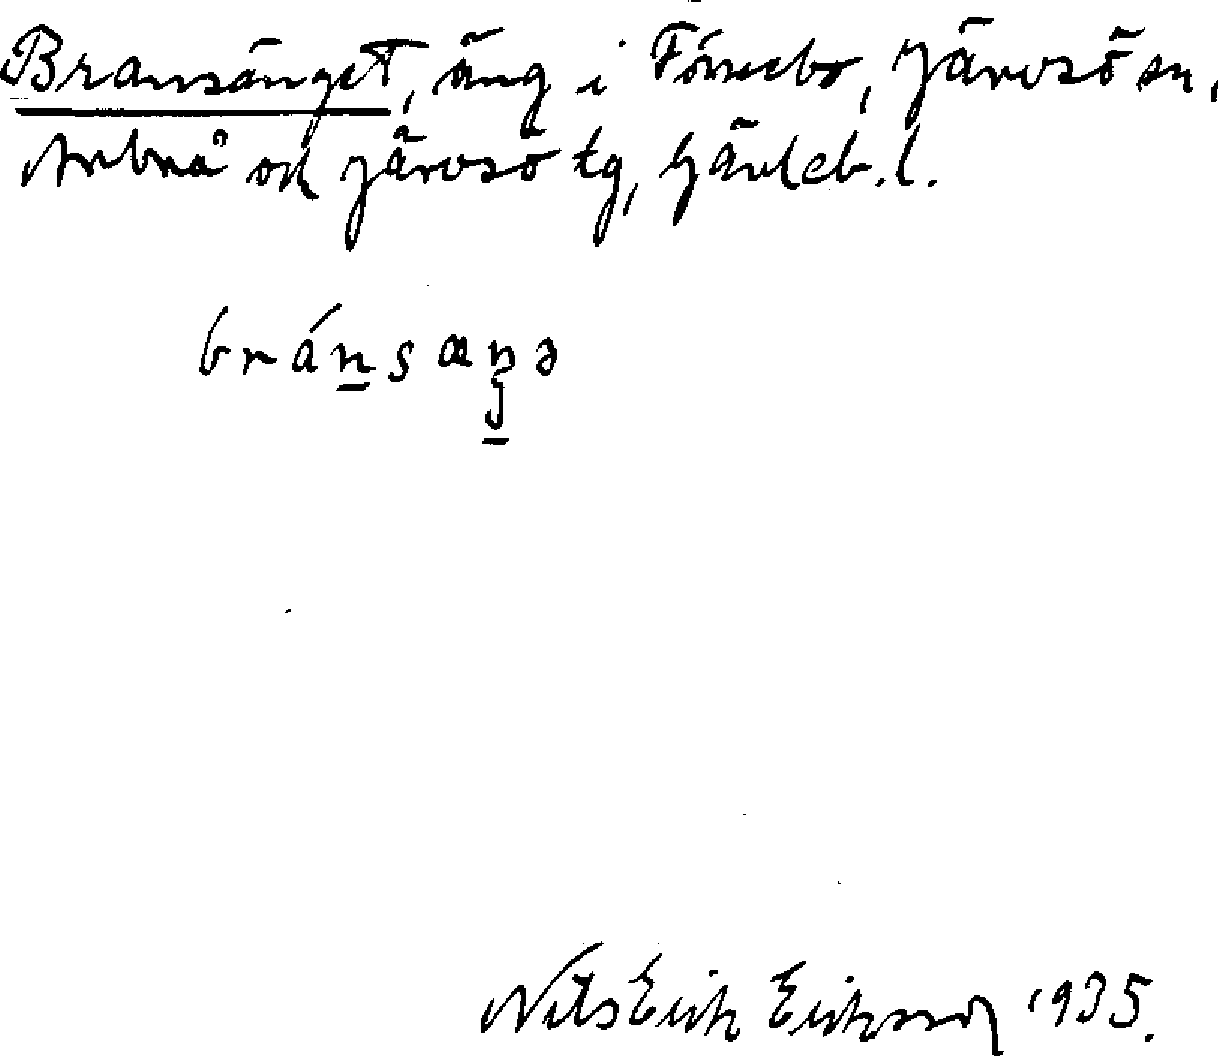 Bransänget, äng i Föne​bo, Järvsö sn,
Arbrå och Järvsö tg, Gävleb. l.
bránsæŋə
Nils Erik Eriksson 1935.